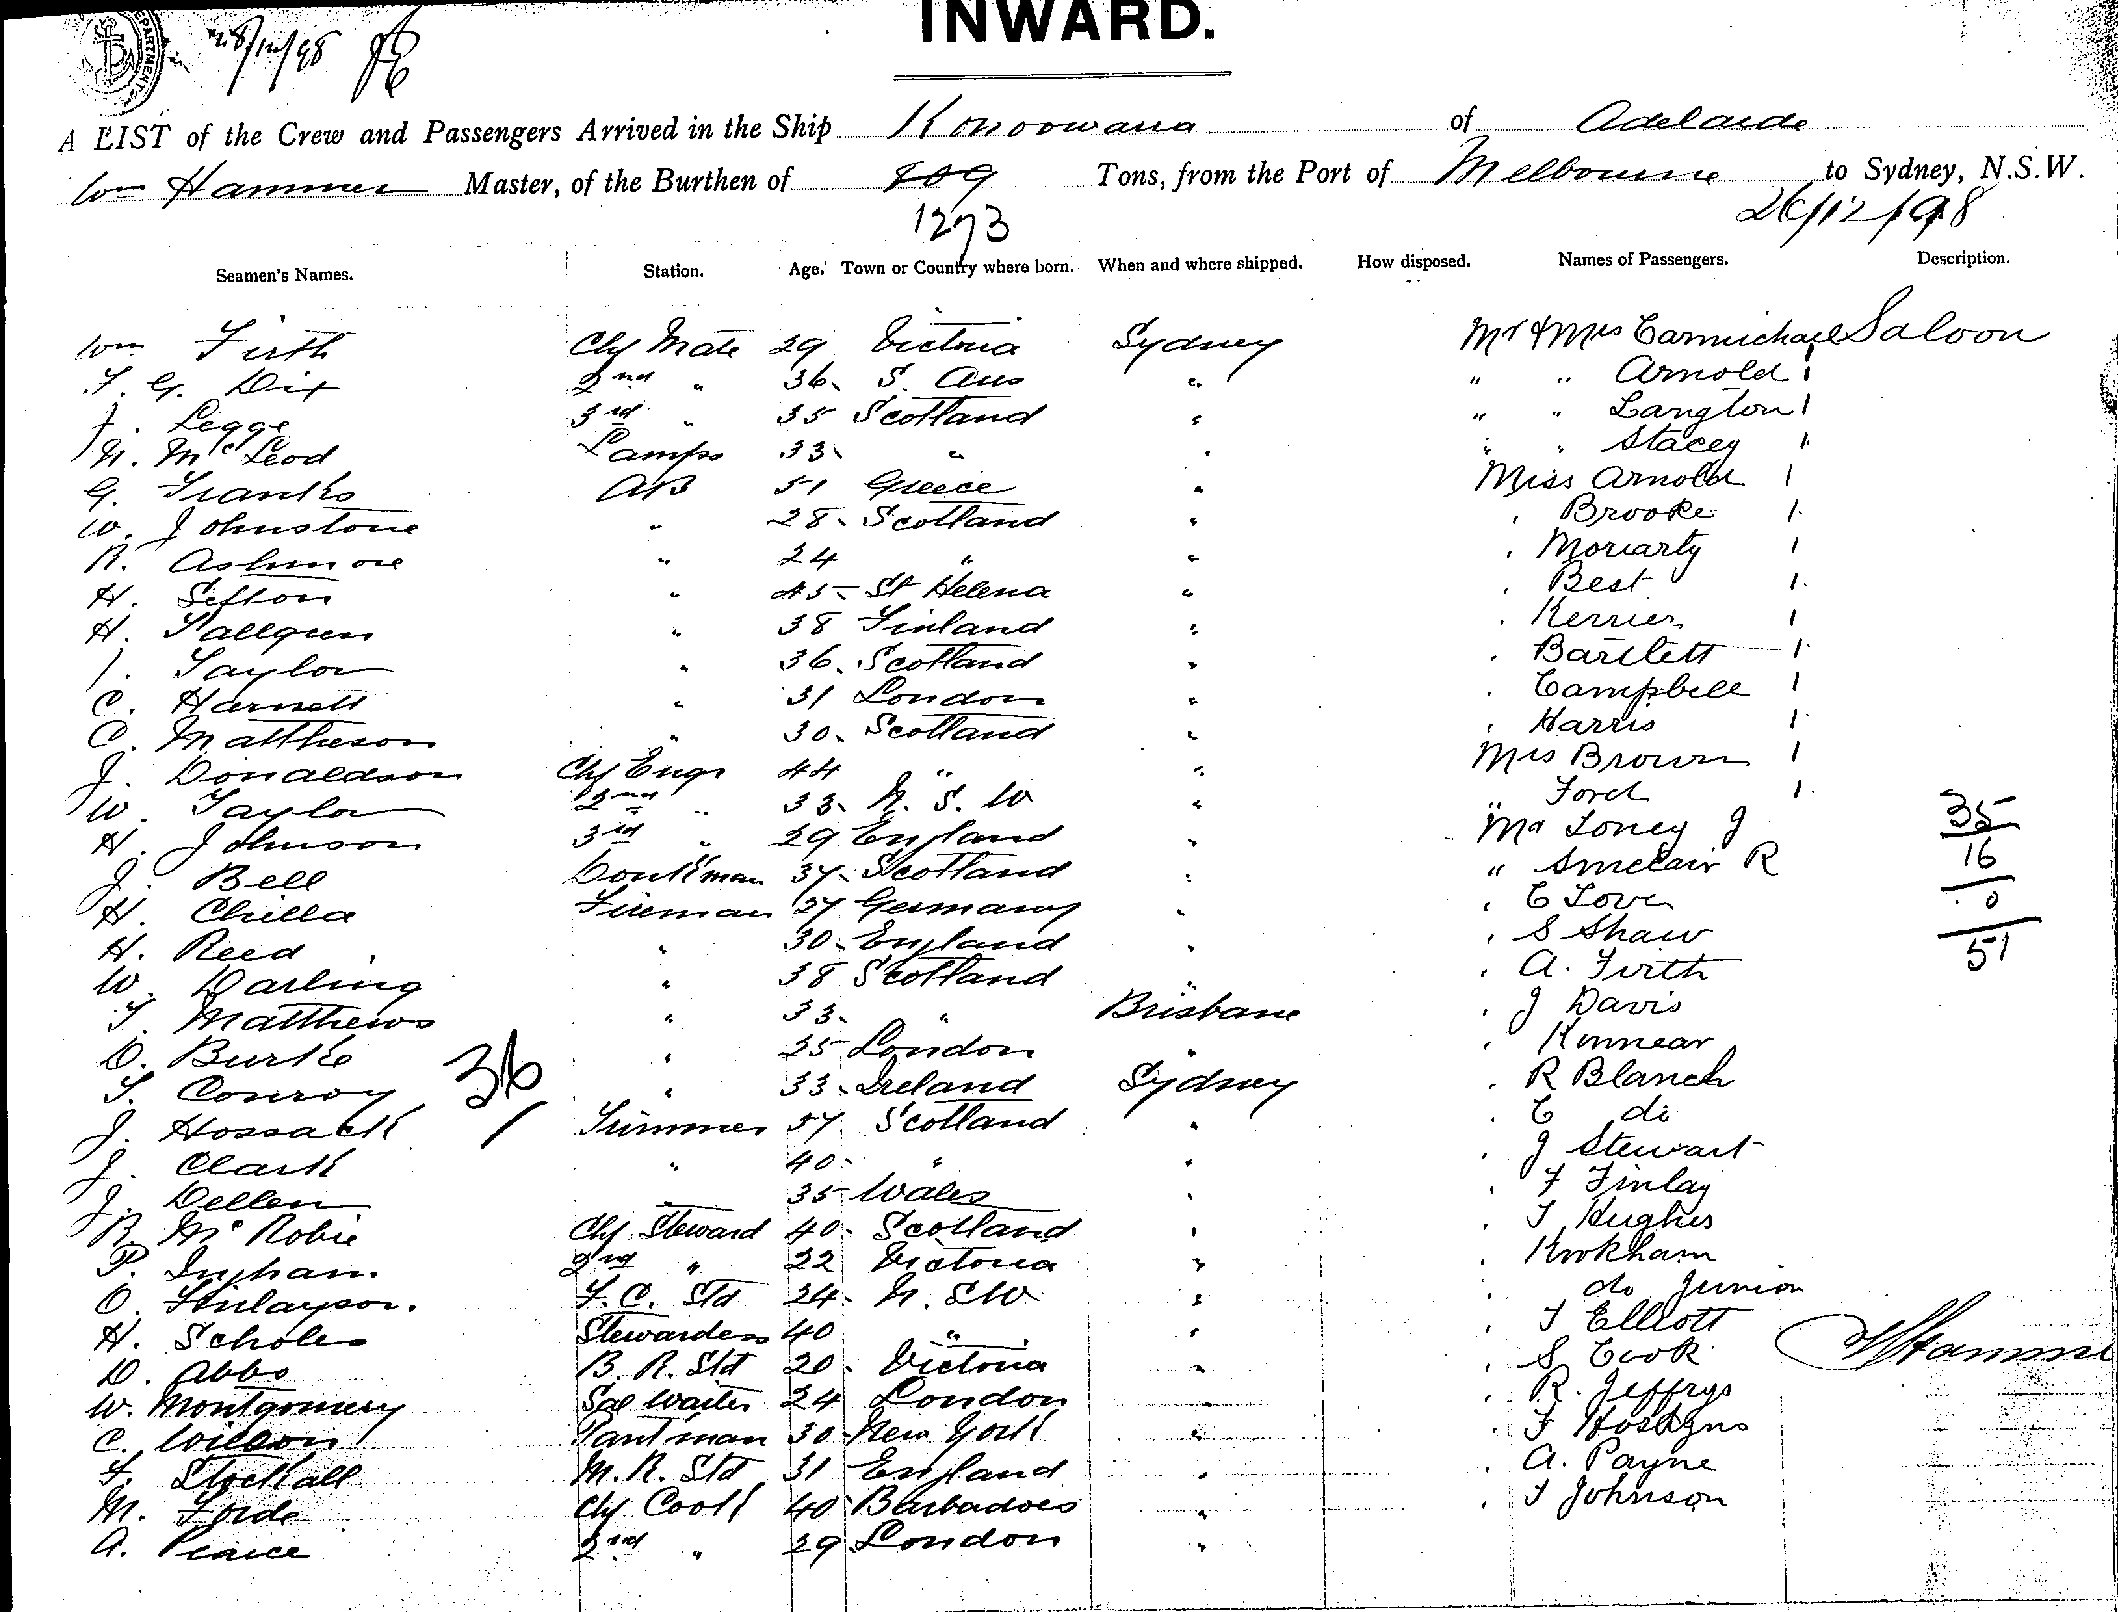 DEPARTMENT
28/12/98
INWARD.
A LIST of the Crew and Passengers Arrived in the Ship Konoowana of Adelaide
Wm Hammer Master, of the Burthen of 809 Tons, from the Port of Melbourne to Sydney, N.S.W.
1273 26/12/98
Seamen's Names. Station. Age. Town or Country where born. When and where shipped. How disposed. Names of Passengers. Description.
Wm Firth Chf Mate 29 Victoria Sydney Mr & Mrs Carmichael Saloon
T. G. Dix 2nd " 36 S. Aus " " " Arnold 1
J. Legge 3rd " 35 Scotland " " " Langton 1
N. McLeod Lamps 33 " " " " Stacey 1
G. Franks AB 51 Greece " Miss Arnold 1
W. Johnstone " 28 Scotland " " Brooke 1
R. Ashmore " 24 " " " Moriarty 1
H. Sefton " 45 St Helena " " Best 1
H. Sallgren " 38 Finland " " Kerrier 1
J. Taylor " 36 Scotland " " Bartlett 1
C. Harnett " 31 London " " Campbell 1
C. Mattheson " 30 Scotland " " Harris 1
J. Donaldson Chf Engr 44 " " Mrs Brown 1
W. Taylor 2nd " 33 N. S. W " " Ford 1
H. Johnson 3rd " 29 England " Mr Toney J 35
J. Bell Donkman 37 Scotland " " Sinclair R 16
H. Chilla Fireman 27 Germany " " C Love 0
H. Reed " 30 England " " S Shaw 51
W. Darling " 38 Scotland " " A. Firth
T. Matthews " 33 " Brisbane " J Davis
D. Burke " 35 London " " Kinnear
T. Conroy 36 " 33 Ireland Sydney " R Blanch
J. Hossack / Trimmer 57 Scotland " " C do
J. Clark " 40 " " " J Stewart
J. Dellen 35 Wales " " F Finlay
R McRobie Chf Steward 40 Scotland " " T Hughes
P. Ingham 2nd " 22 Victoria " " Kirkham
O. Finlayson. F. C. Std 24 N. S W " " do Junior
H. Scholes Stewardess 40 " " " T Elliott
D. Abbs B. R. Std 20 Victoria " " S Cook W Hammer
W. Montgomery Sal Waiter 24 London " " R. Jeffrys
C. Wilson Pantman 30 New York " " F Hoskyns
F. Stockall M. R. Std 31 England " " A. Payne
M. Forde Chf Cook 40 Barbadoes " " T Johnson
A. Pearce 2nd " 29 London "